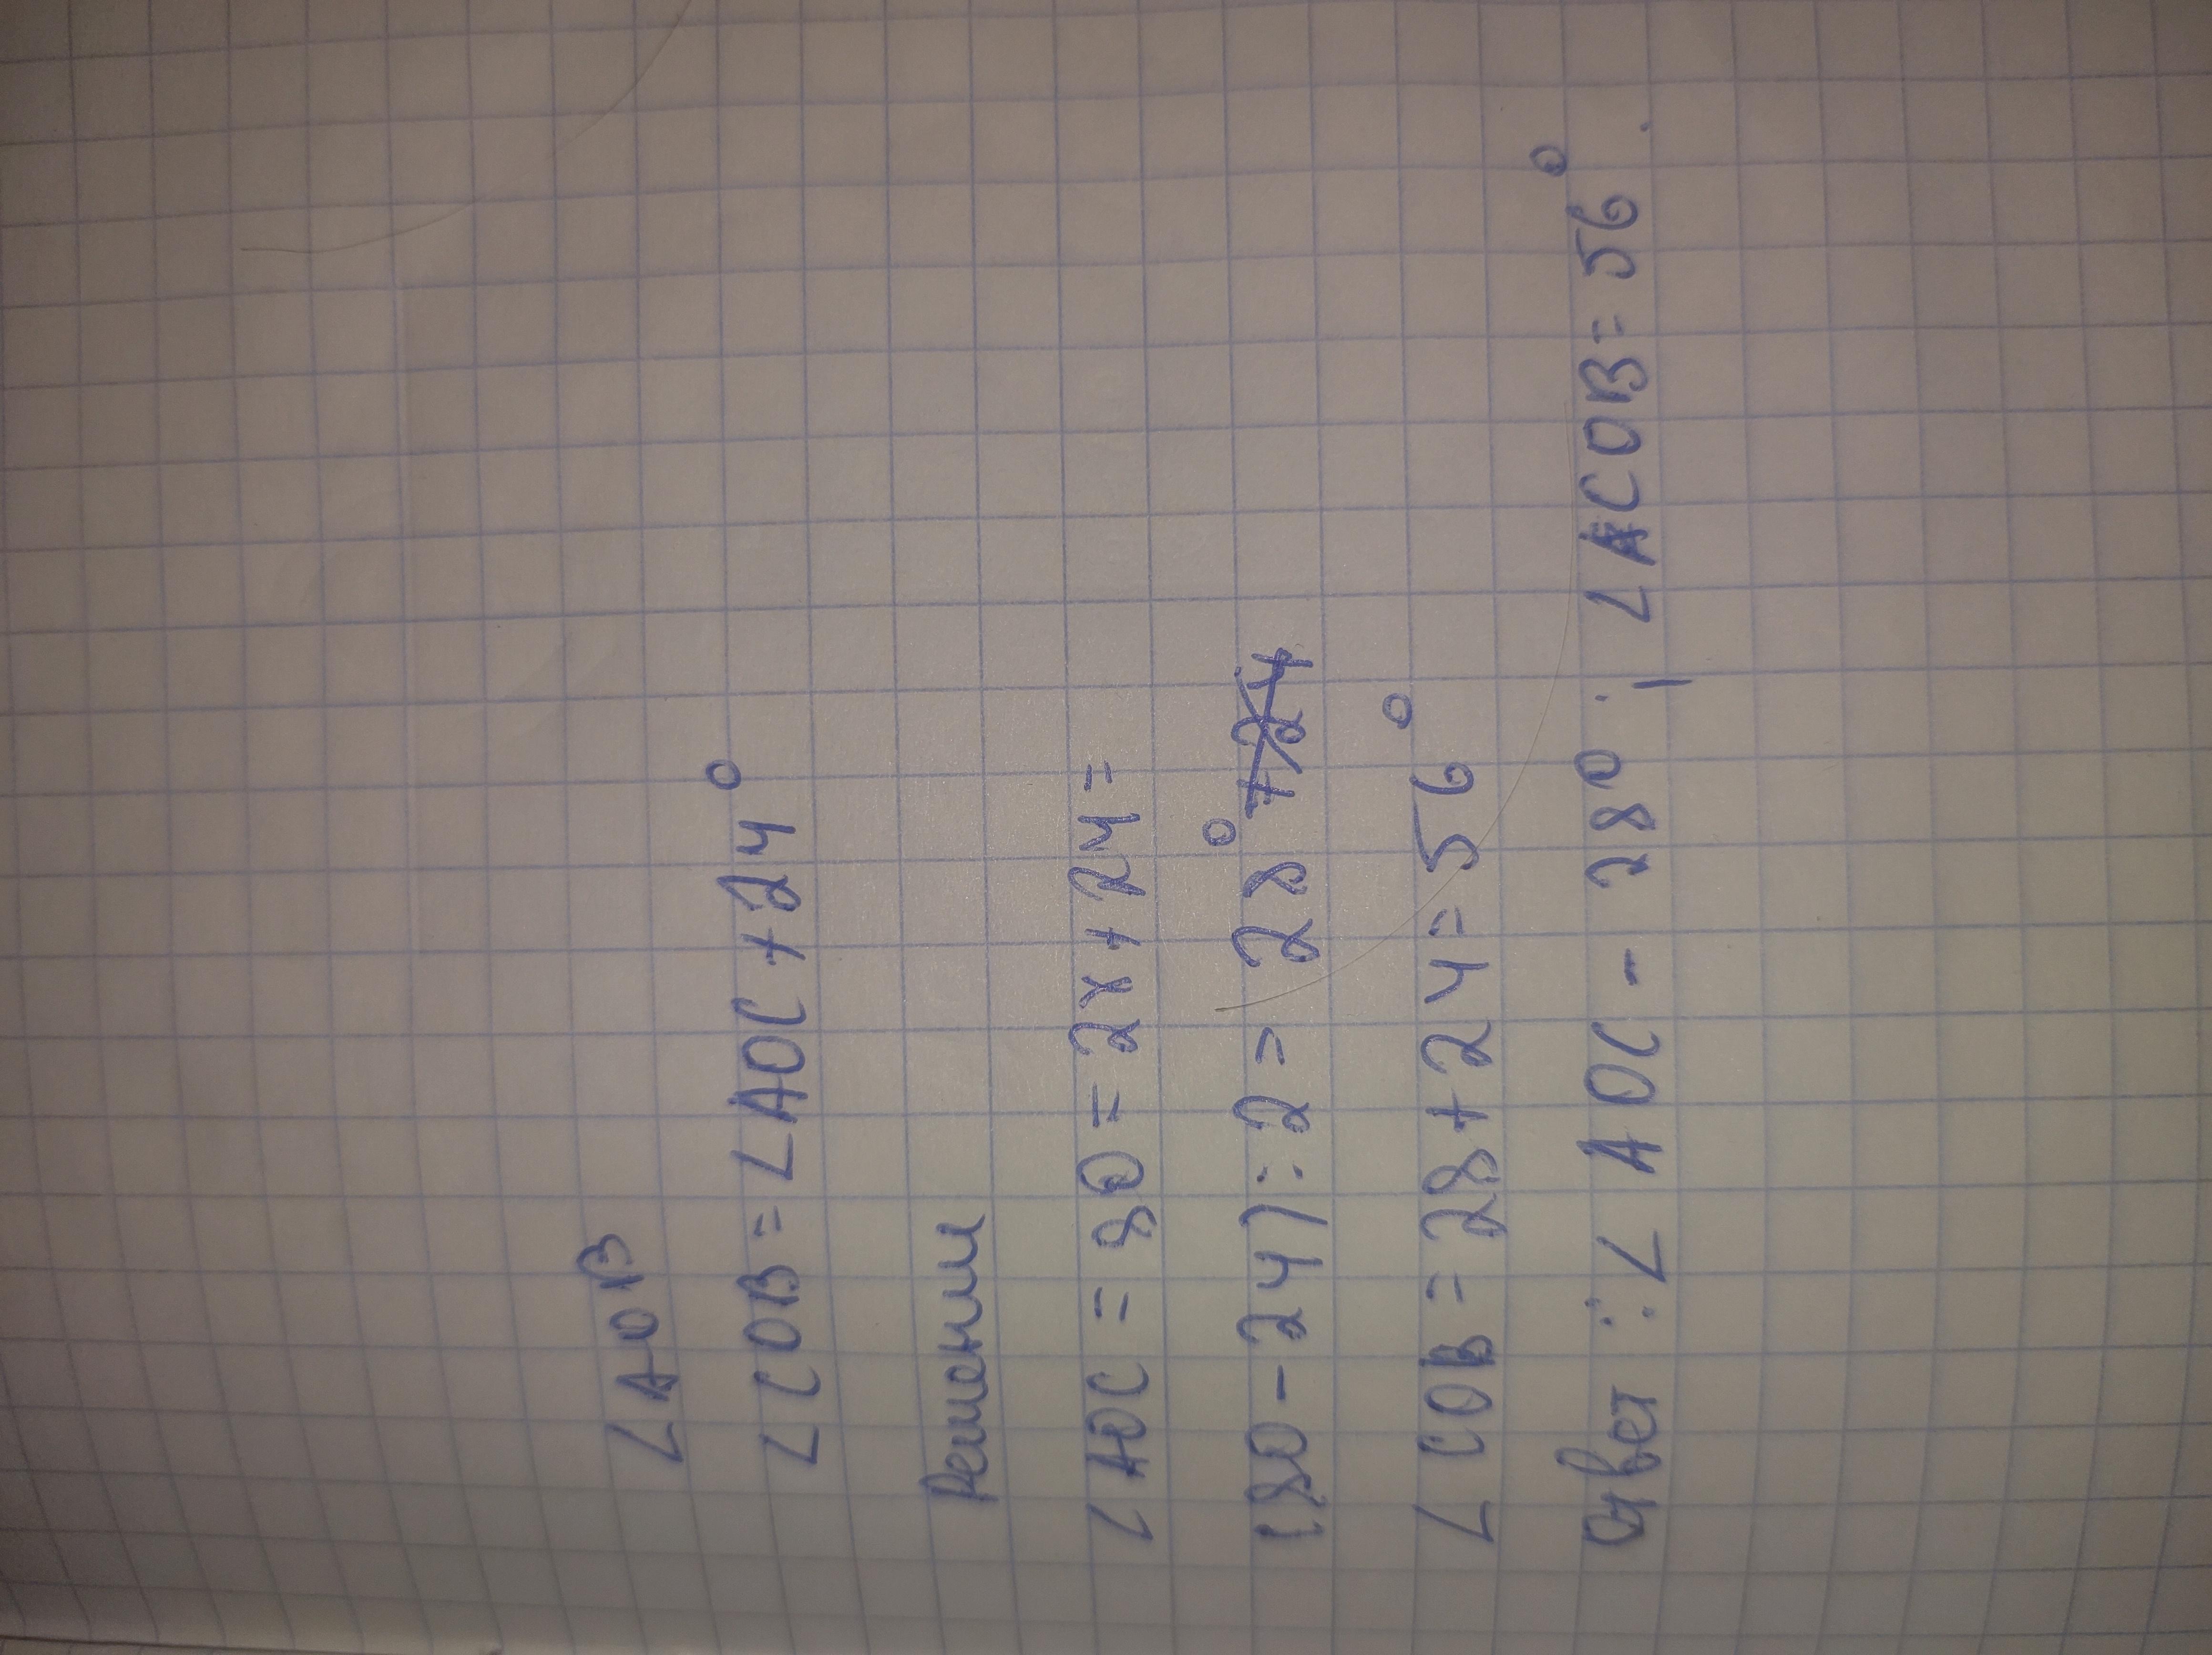 ∠AOB
∠COB = ∠AOC + 24°
Решении
∠AOC = 80 = 2x + 24 =
(80 - 24) : 2 = 28° + 24
∠COB = 28 + 24 = 56°
Ответ : ∠ AOC - 28° ; ∠COB = 56° .